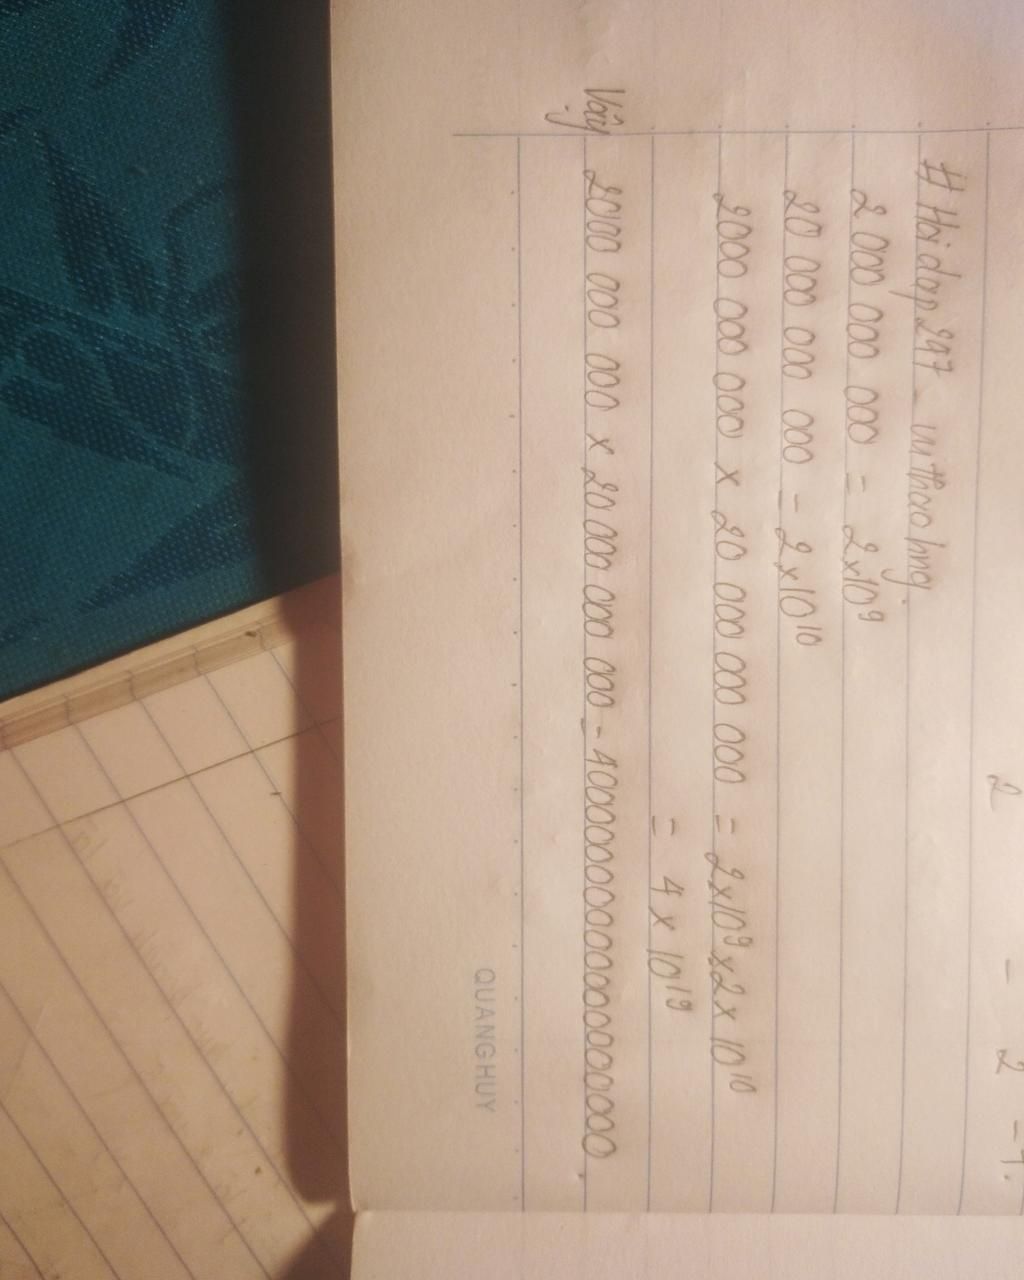 # Hoidap247 -
2 000 000 000 = 2x10⁹
20 000 000 000 = 2x10¹⁰
2000 000 000 x 20 000 000 000 = 2x10⁹ x 2 x 10¹⁰
= 4 x 10¹⁹
Vậy 2000 000 000 x 20 000 000 000 = 40000000000000000000.
QUANG HUY